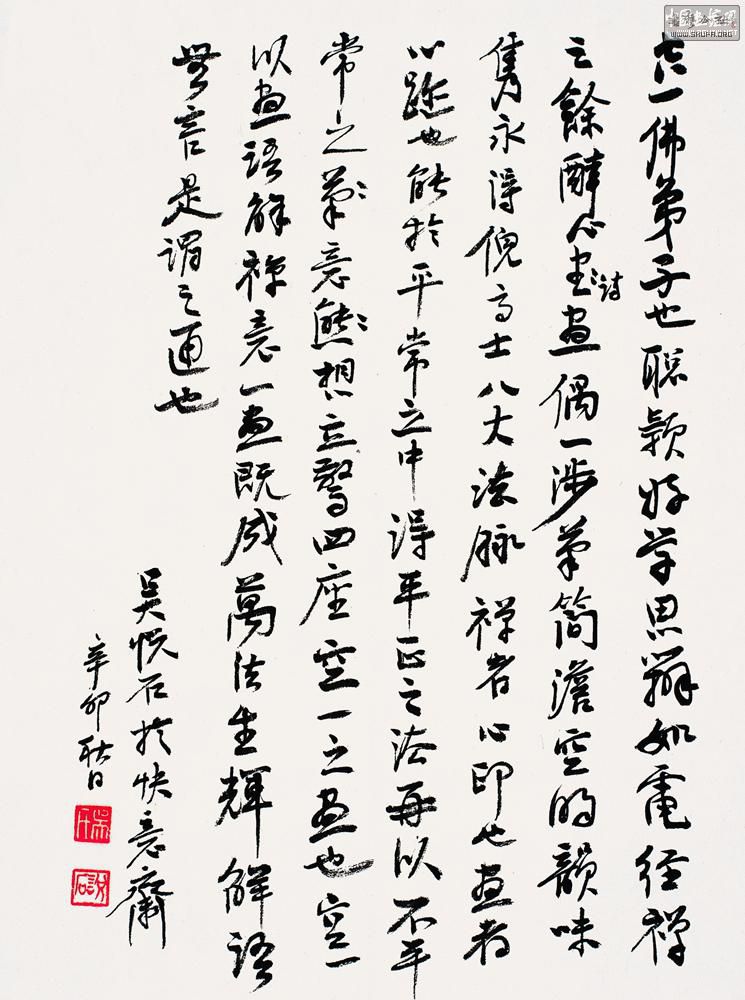 空一佛弟子也聪颖好学思辩如電经禅
之餘醉心書詩畫偶一涉筆简澹空明韻味
隽永得倪高士八大法脉禅者心印也畫者
心跡也能於平常之中得平正之法再以不平
常之筆〻意態〻想立驚四座空一之畫也空一
以畫语解禅意一畫既成萬法生輝解语
無言是谓之通也
吴悦石於快意齋
辛卯秋日
WWW.SHUFA.ORG